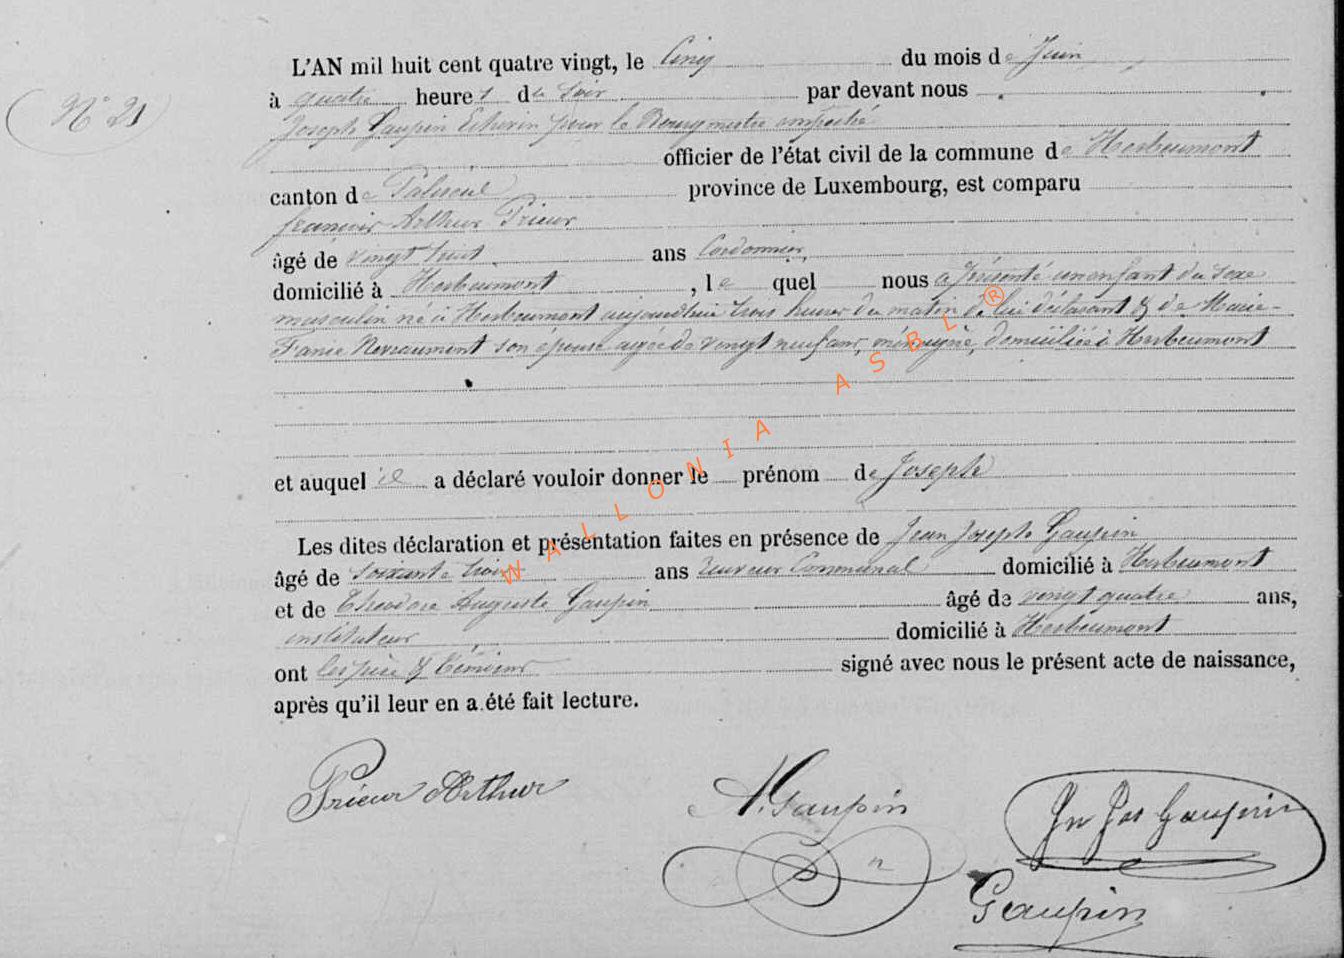 N° 21
L'AN mil huit cent quatre vingt, le Cinq du mois de Juin
à quatre heures du soir par devant nous
Joseph Gaupin Echevin pour le Bourgmestre empêché
officier de l'état civil de la commune de Herbeumont
canton de Paliseul province de Luxembourg, est comparu
françois Arthur Prieur
âgé de vingt huit ans Cordonnier,
domicilié à Herbeumont, le quel nous a présenté un enfant du sexe
masculin né à Herbeumont aujourd'hui trois heures du matin de lui déclarant & de Marie-
son épouse agée de vingt neuf ans, ménagère, domiciliée à Herbeumont
et auquel il a déclaré vouloir donner le prénom de Joseph
Les dites déclaration et présentation faites en présence de Jean Joseph Gaupin
âgé de soixante trois ans Receveur Communal domicilié à Herbeumont
et de Théodore Auguste Gaupin âgé de vingt quatre ans,
instituteur domicilié à Herbeumont
ont les père & témoins signé avec nous le présent acte de naissance,
après qu'il leur en a été fait lecture.
Prieur Arthur
A. Gaupin
Jn Jos Gaupin
Gaupin
WALLONIA ASBL ®